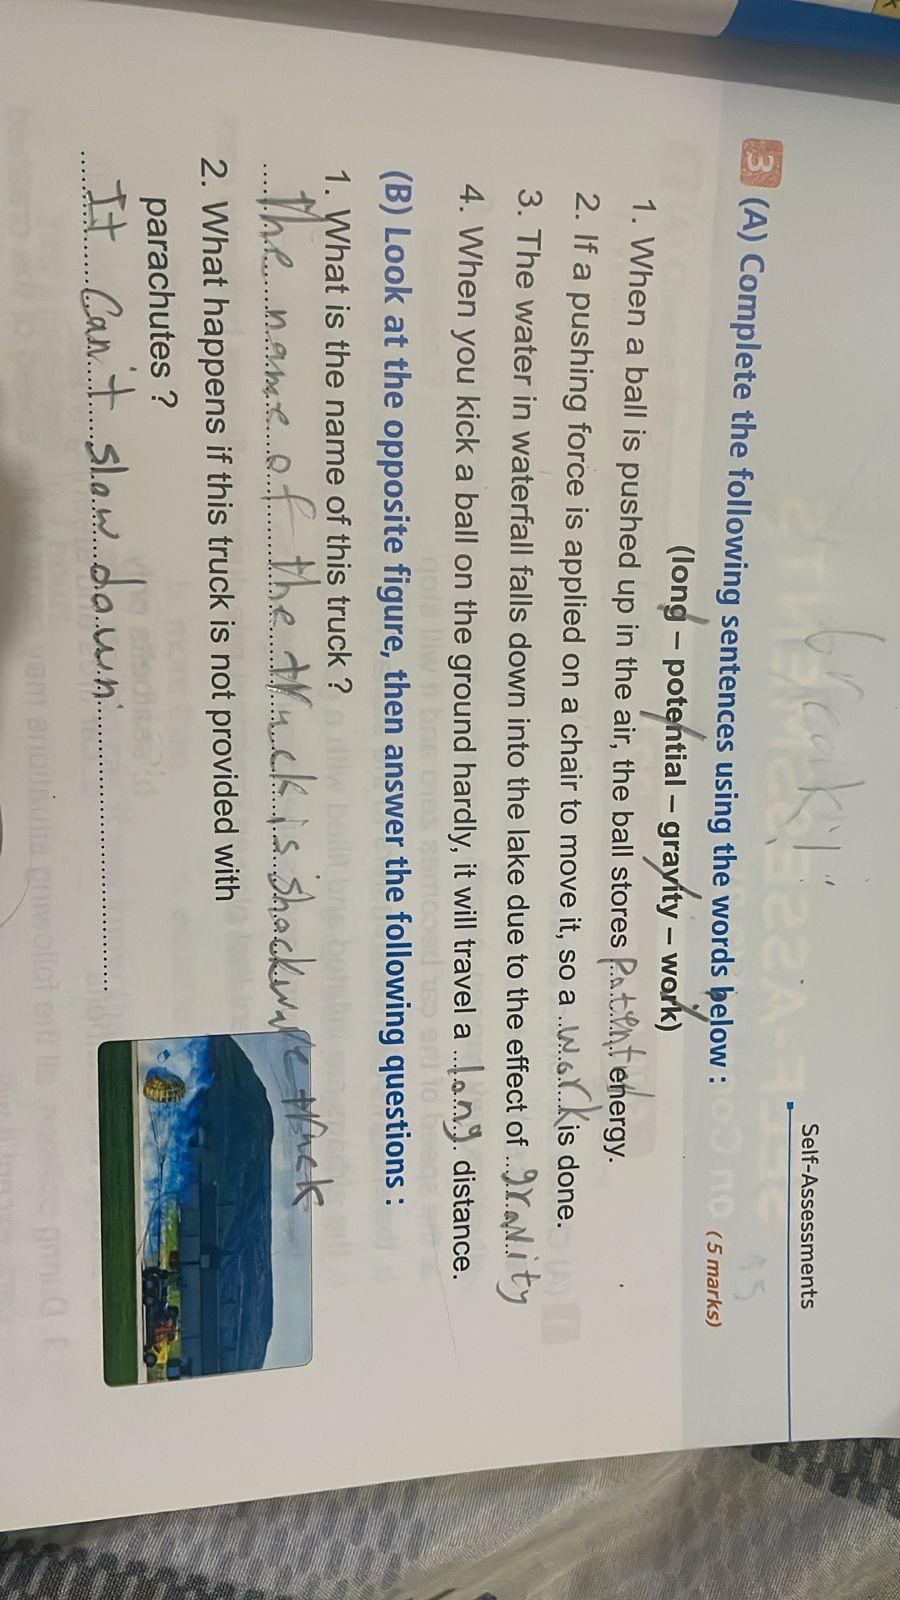 Self-Assessments
3 (A) Complete the following sentences using the words below : (5 marks)
(long – potential – gravity – work)
1. When a ball is pushed up in the air, the ball stores Potential energy.
2. If a pushing force is applied on a chair to move it, so a work is done.
3. The water in waterfall falls down into the lake due to the effect of gravity
4. When you kick a ball on the ground hardly, it will travel a long distance.
(B) Look at the opposite figure, then answer the following questions :
1. What is the name of this truck ?
the name of the truck is shockwave truck
2. What happens if this truck is not provided with
parachutes ?
It can't slow down.